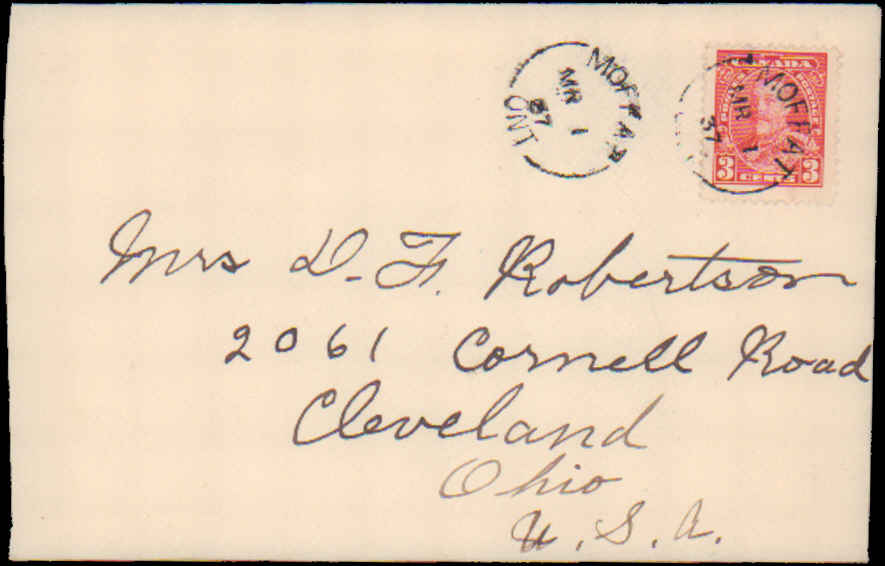 MOFFAT
MR 1
37
ONT
CANADA
POSTES POSTAGE
3 CENTS 3
MOFFAT
MR 1
37
Mrs D. F. Robertson
2061 Cornell Road
Cleveland
Ohio
U. S. A.